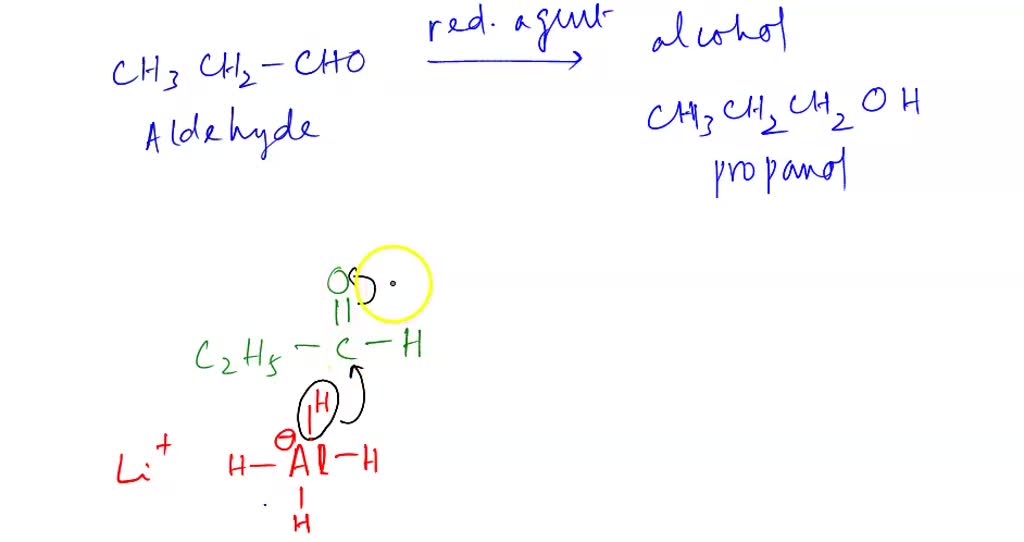 CH3 CH2 – CHO red. agent alcohol
Aldehyde CH3CH2CH2OH
propanol
O
||
C2H5 – C – H
H
|
Li+ H – Al⊖ – H
|
H